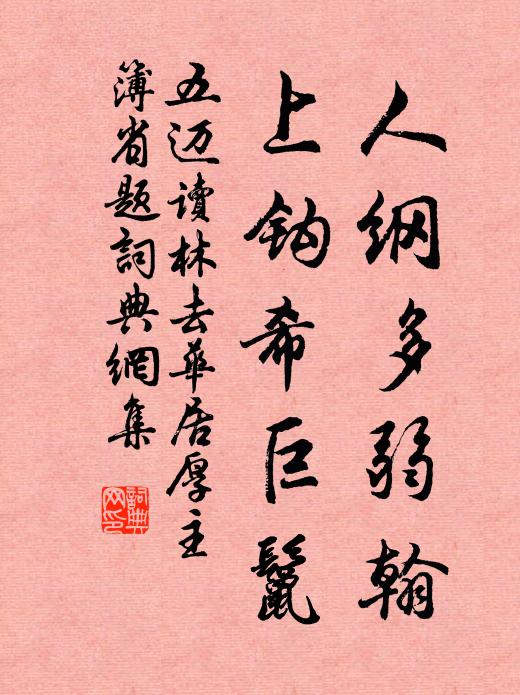 人纲多弱翰
上钩希巨鬣
五迈读林去华居厚主
簿省题詞典網集
詞典
网印